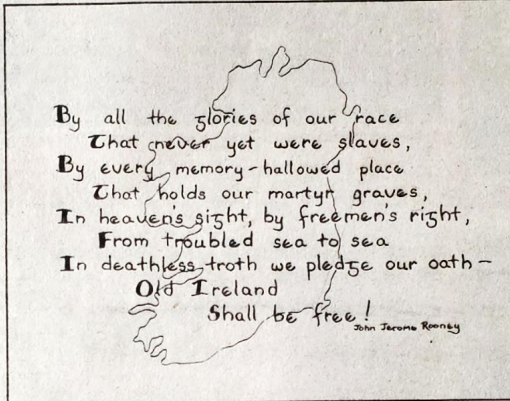 By all the glories of our race
That never yet were slaves,
By every memory-hallowed place
That holds our martyr graves,
In heaven's sight, by freemen's right,
From troubled sea to sea
In deathless troth we pledge our oath -
Old Ireland
Shall be free!
John Jerome Rooney